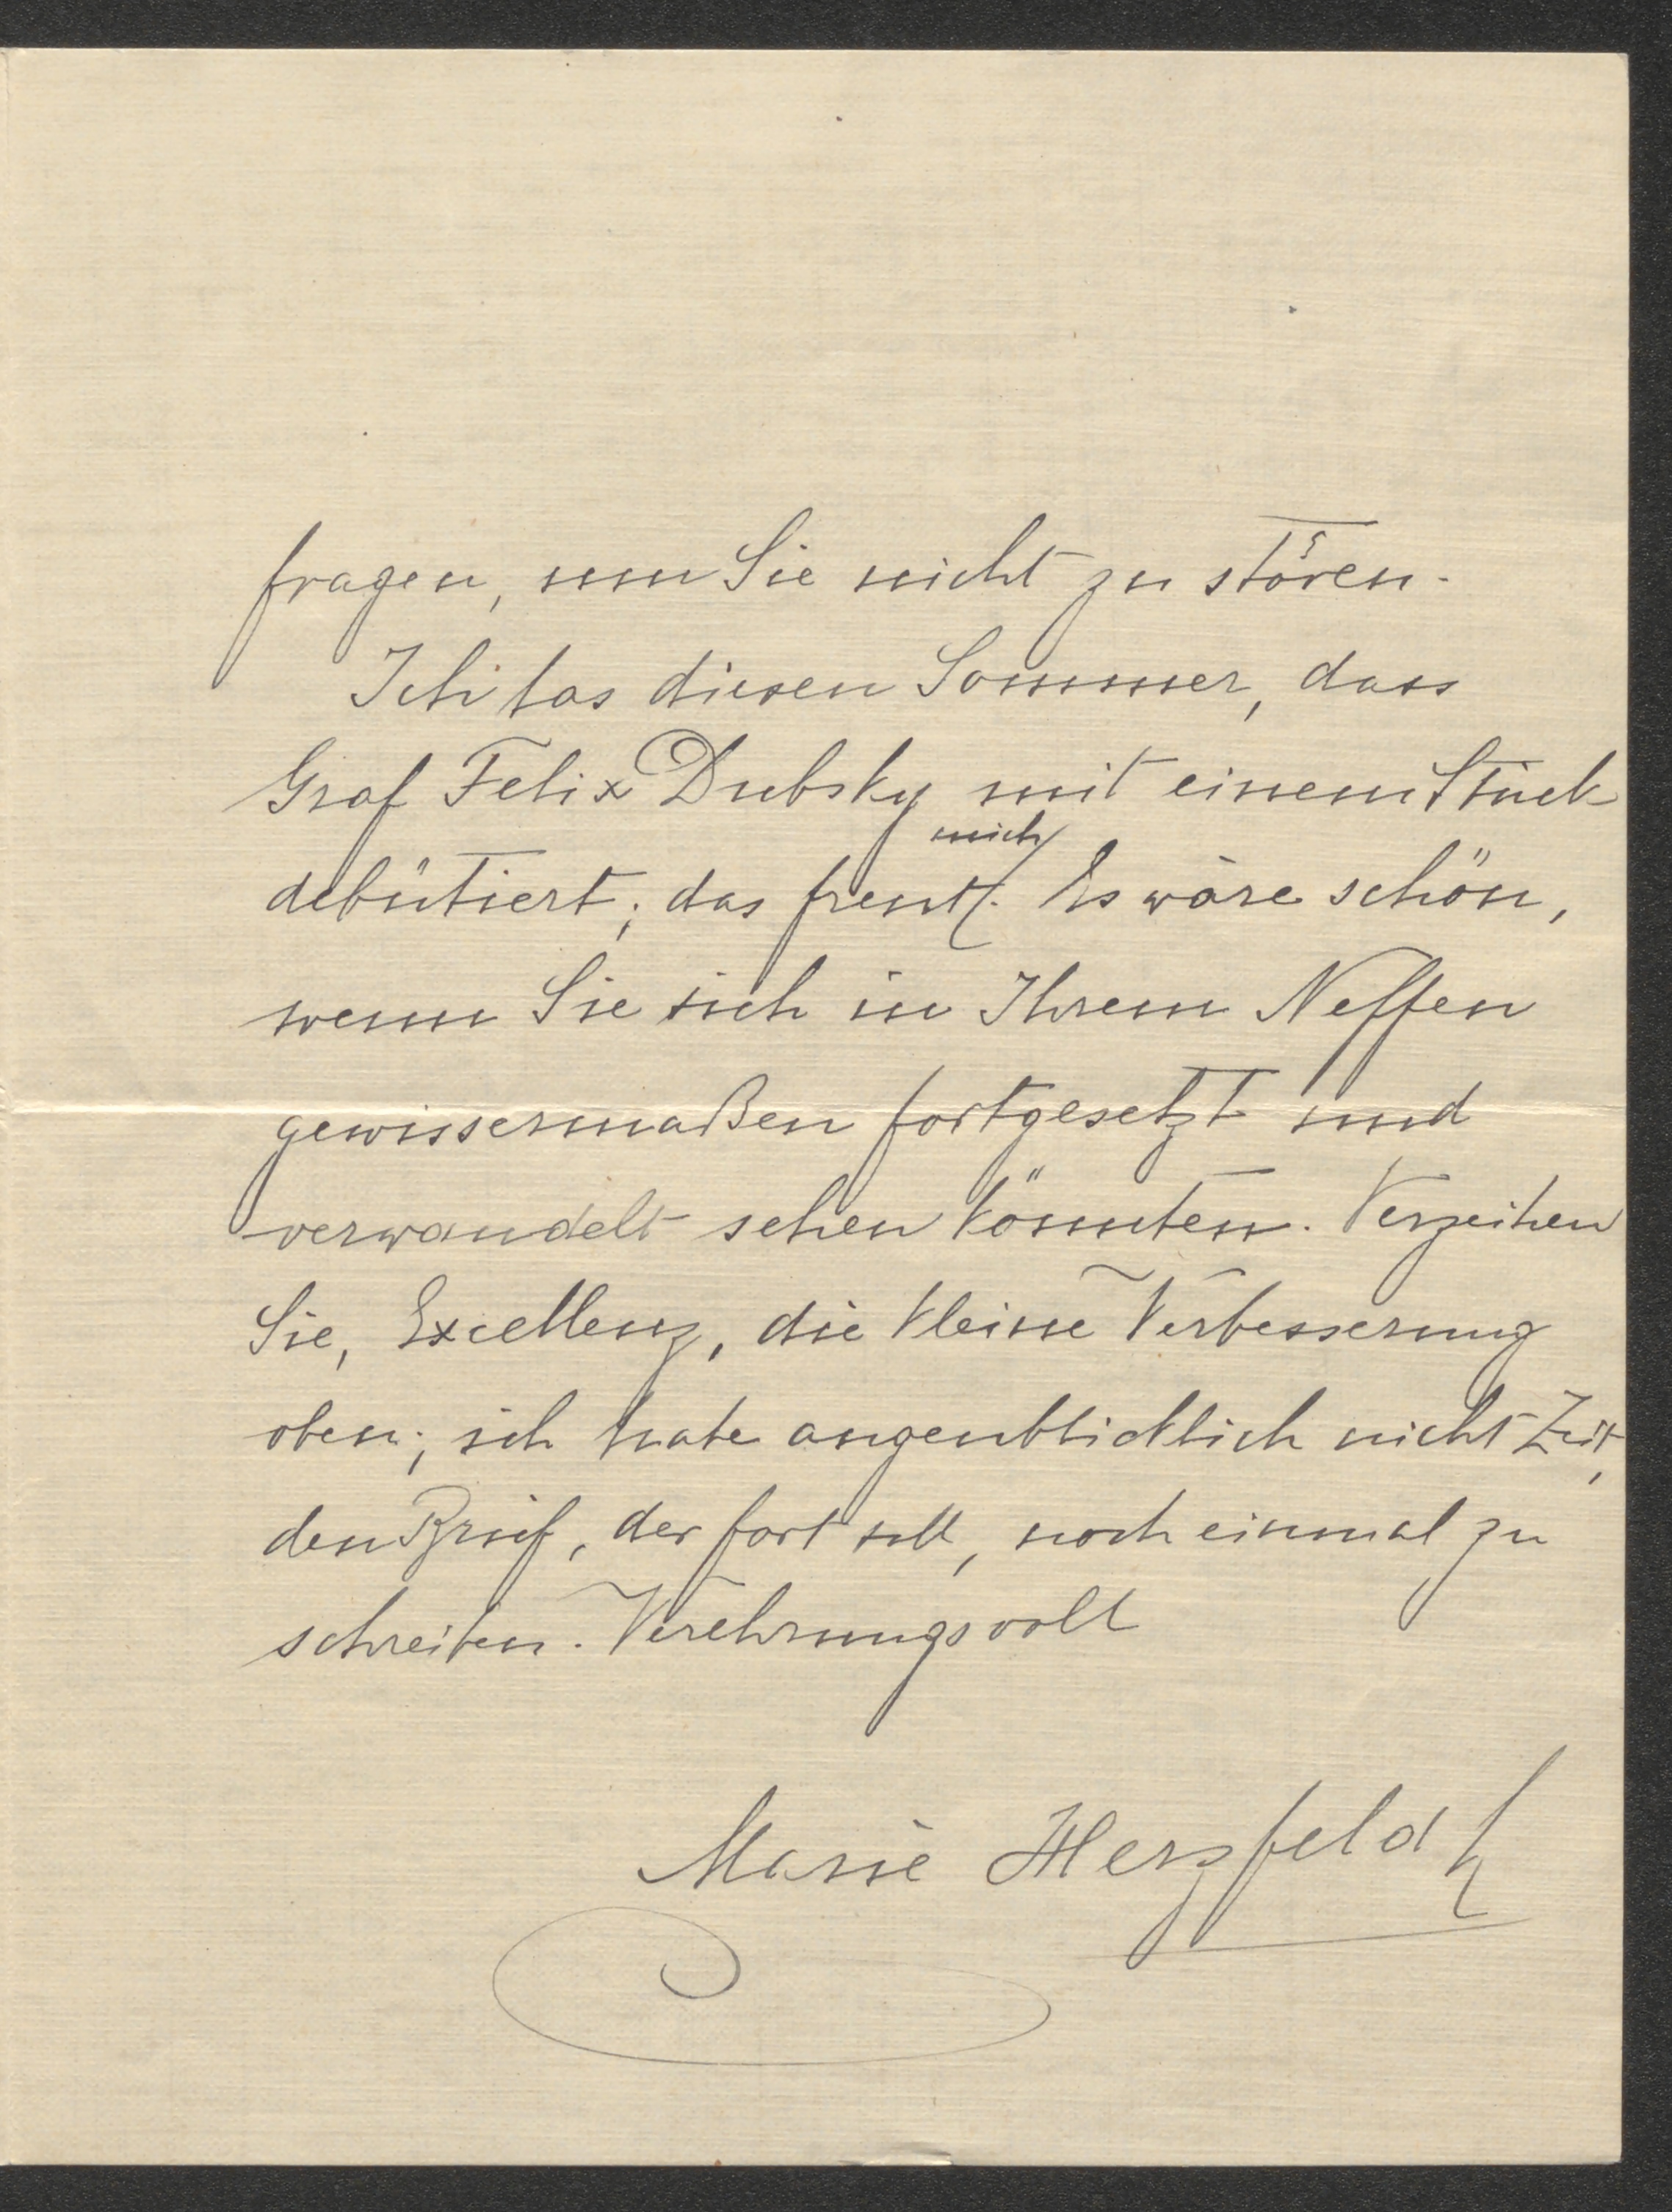 fragen, um Sie nicht zu stören.
Ich las diesen Sommer, dass
Graf Felix Dubsky mit einem Stück
debütiert; das freut mich. Es wäre schön,
wenn Sie sich in Ihrem Neffen
gewissermaßen fortgesetzt und
verwandelt sehen könnten. Verzeihen
Sie, Excellenz, die kleine Verbesserung
oben; ich habe augenblicklich nicht Zeit,
den Brief, der fort soll, noch einmal zu
schreiben. Verehrungsvoll
Marie Herzfeld